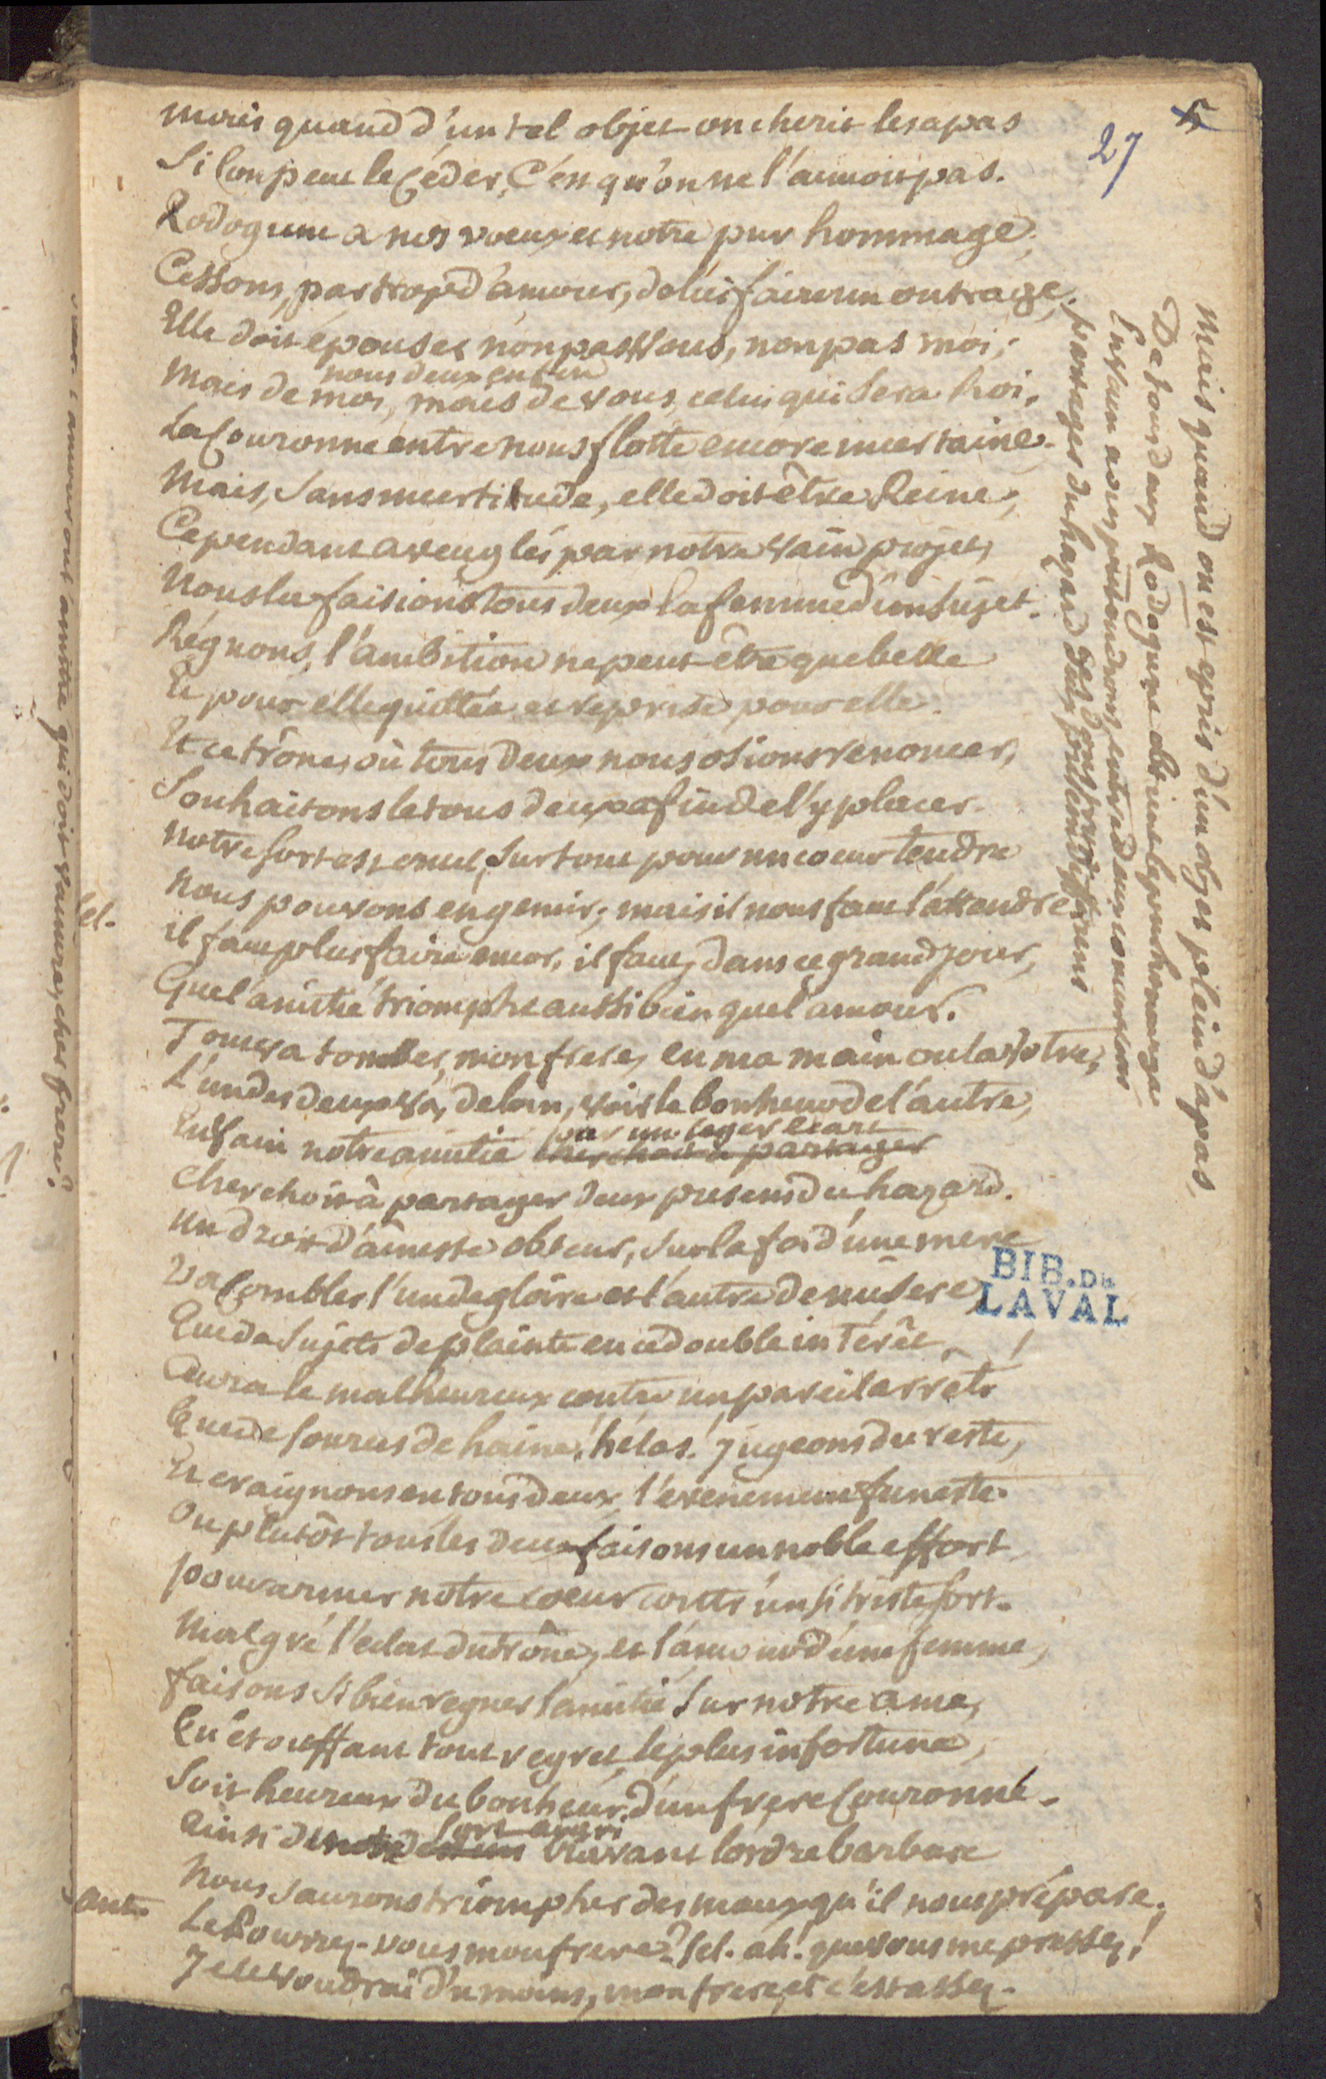 5
27
Mais quand d'un tel objet on cherit les apas
Si l'on peut le céder, C'est qu'on ne l'aimoit pas.
Rodogune a nos voeux et notre pur hommage,
Cessons, par trop d'amour, de lui faire un outrage,
Elle doit épouser non pas Vous, non pas moi,
nous deux enfin
Mais de moi, mais de vous, celui qui Sera Roi.
La Couronne entre nous flotte encore incertaine.
Mais, Sans incertitude, elle doit être Reine,
Cependant aveuglés par notre vain projet,
Nous la faisions tous deux la femme d'un Sujet.
Régnons, l'ambition ne peut être que belle
Et pour elle quittée et reprise pour elle.
Et ce trône, où tous deux nous osions renoncer,
Souhaitons le tous deux afin de l'y placer.
Notre sort est cruel, Surtout pour un coeur tendre
Sel.
Nous pouvons en gemir; mais il nous faut l'attendre
il faut plus faire encor, il faut, dans ce grand jour,
Que l'amitié triomphe aussi bien que l'amour.
Tout va tomber, mon frere, en ma main ou la Votre,
L'un des deux va, de loin, voir le bonheur de l'autre,
par un leger ecart
En Vain notre amitie cherchoit à partager
Cherchoit à partager deux presens du hazard.
Un droit d'ainesse obscur, Sur la foi d'une mere
Va Combler l'un de gloire et l'autre de misere,
Que de Sujets de plainte en ce double intérêt
Aura le malheureux contre un pareil arret!
Que de sources de haine! hélas! jugeons du reste,
Et craignons en tous deux l'evenement funeste.
Ou plutôt tous les deux faisons un noble effort
pour armer notre coeur contr'un si triste sort.
Malgré l'eclat du trône, et l'amour d'une femme,
faisons Si bien regner l'amitié Sur notre ame,
Qu'etouffant tout regret, le plus infortuné,
Soit heureux du bonheur d'un frere Couronné.
Sort
Ainsi de bravant l'ordre barbare
Nous Saurons triompher des maux qu'il nous prépare.
Ant.
Le Pourrez-vous mon frere? Sel. ah! que vous me pressez!
Je le voudrai du moins, mon frere, et c'est assez.
Mais quand on est epris d'un objet plein d'apas,
De tous deux Rodogune obtient le pur hommage
En vain nous entre deux concurrens
partager du hazard
amour ont
qui doit vaincre, cher frere?
BIB. DE
LAVAL